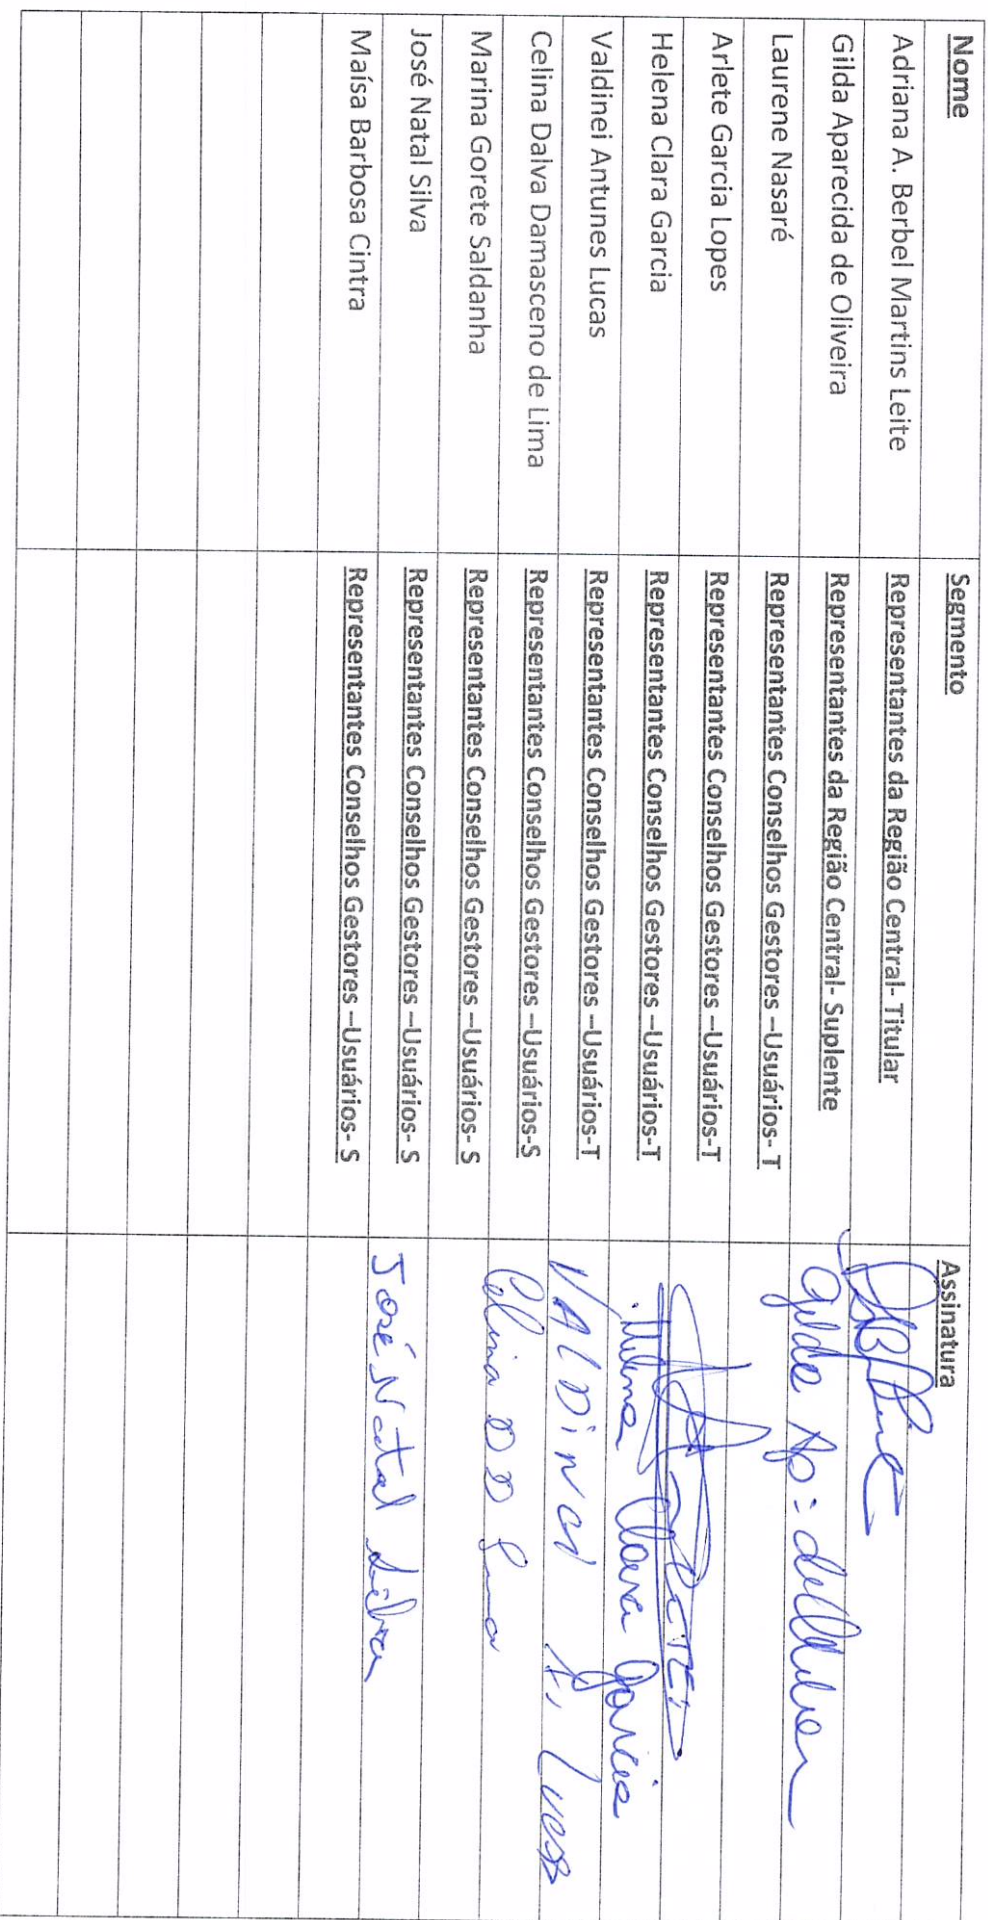 Nome Segmento Assinatura
Adriana A. Berbel Martins Leite Representantes da Região Central- Titular
Gilda Aparecida de Oliveira Representantes da Região Central- Suplente Gilda Ap:
Laurene Nasaré Representantes Conselhos Gestores –Usuários- T
Arlete Garcia Lopes Representantes Conselhos Gestores –Usuários-T
Helena Clara Garcia Representantes Conselhos Gestores –Usuários-T Helena Clara Garcia
Valdinei Antunes Lucas Representantes Conselhos Gestores –Usuários-T VALDINEI A, Lucas
Celina Dalva Damasceno de Lima Representantes Conselhos Gestores –Usuários-S Celina DD Lima
Marina Gorete Saldanha Representantes Conselhos Gestores –Usuários- S
José Natal Silva Representantes Conselhos Gestores –Usuários- S José Natal Silva
Maísa Barbosa Cintra Representantes Conselhos Gestores –Usuários- S